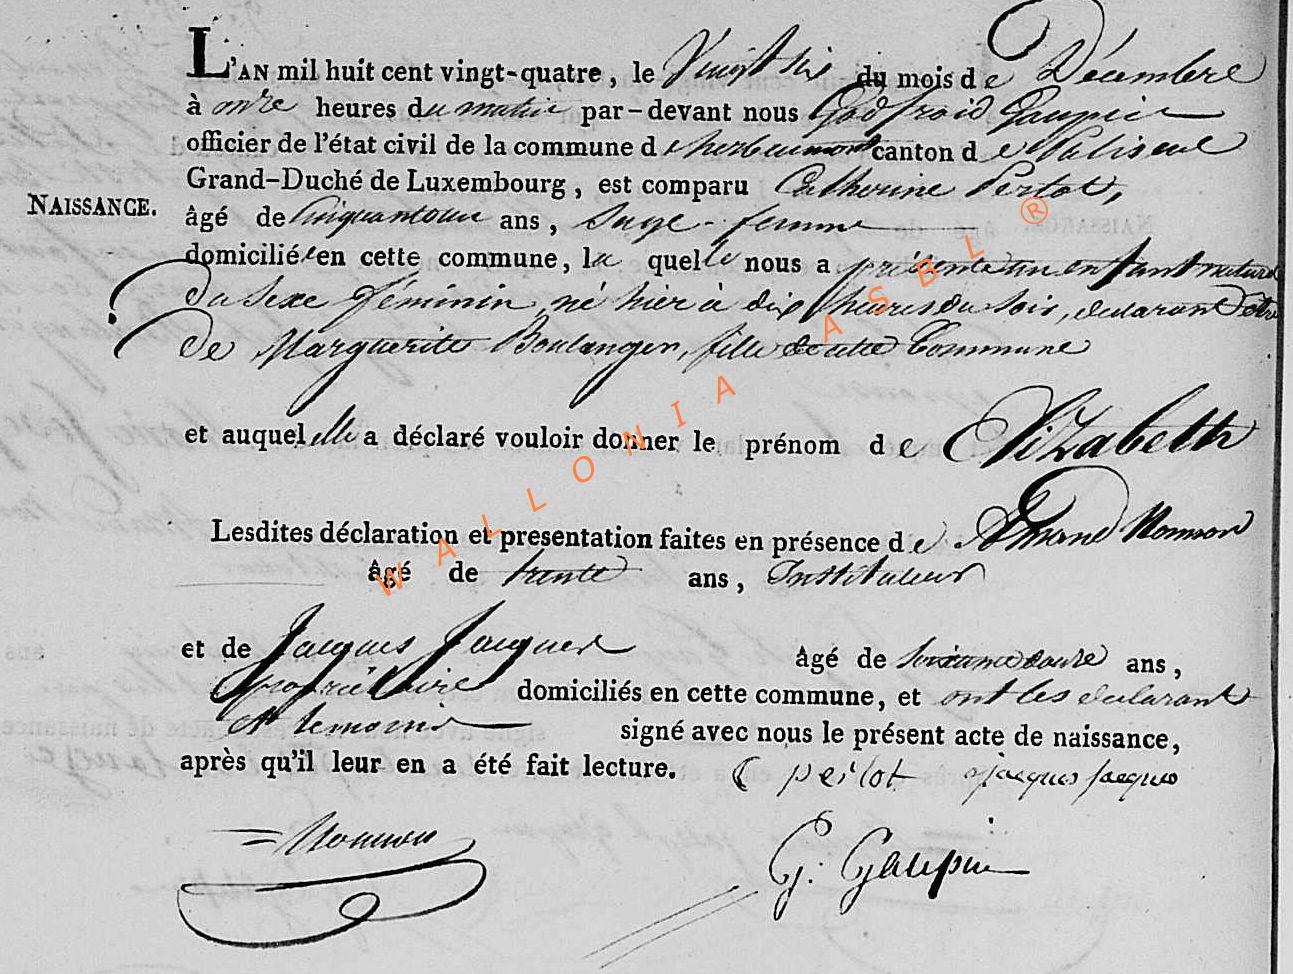 L'AN mil huit cent vingt-quatre, le Vingt six du mois de Décembre
à onze heures du matin par-devant nous Godfroid Gaupin
officier de l'état civil de la commune d'herbeumont canton de Paliseul
Grand-Duché de Luxembourg, est comparu Catherine Perlot,
NAISSANCE.
âgé de Cinquante ans, sage-femme
domiciliée en cette commune, la quelle nous a présenté un enfant naturel
du sexe féminin, né hier à dix heures du soir, déclarant être
de Marguerite Boulanger, fille de cette Commune
et auquel elle a déclaré vouloir donner le prénom de Elizabeth
Lesdites déclaration et presentation faites en présence de Nonnon
âgé de trente ans, Instituteur
et de Jacques Jacques âgé de ans,
propriétaire domiciliés en cette commune, et ont les déclarant
et temoins signé avec nous le présent acte de naissance,
après qu'il leur en a été fait lecture. C perlot jacques jacques
Nonnon
G. Gaupin
WALLONIA ASBL ®